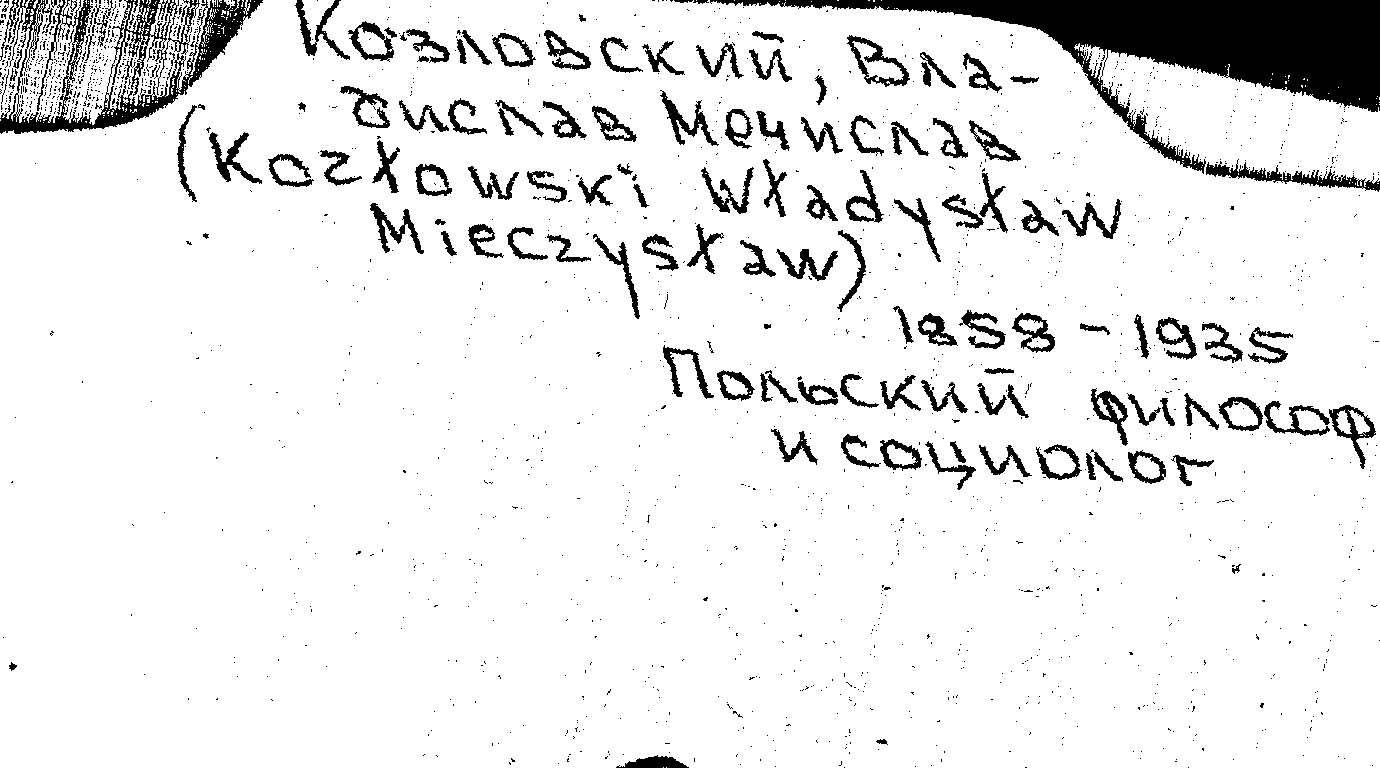 Козловский, Вла-
дислав Мечислав
(Kozłowski Władysław
Mieczysław)
1858 - 1935
Польский философ
и социолог